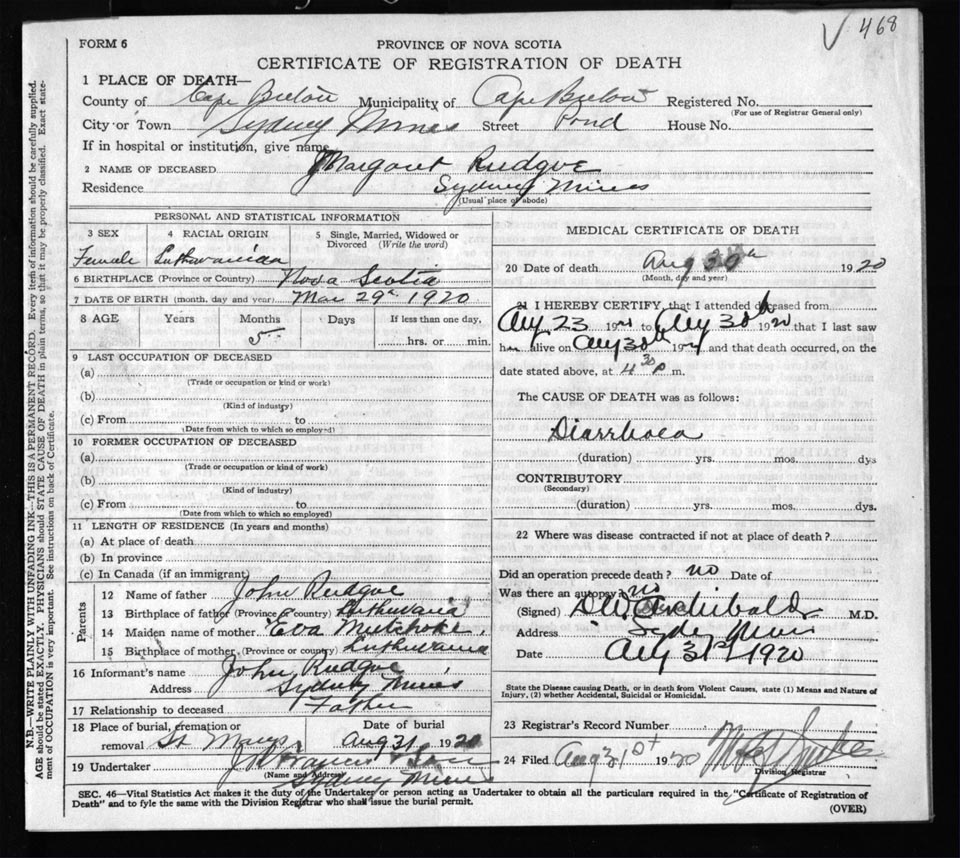 V 468
FORM 6
PROVINCE OF NOVA SCOTIA
CERTIFICATE OF REGISTRATION OF DEATH
1 PLACE OF DEATH—
County of Cape Breton Municipality of Cape Breton Registered No.
(For use of Registrar General only)
City or Town Sydney Mines Street Pond House No.
If in hospital or institution, give name
2 NAME OF DECEASED Margaret Rudgve
Residence Sydney Mines
(Usual place of abode)
PERSONAL AND STATISTICAL INFORMATION
3 SEX 4 RACIAL ORIGIN 5 Single, Married, Widowed or Divorced (Write the word)
Female Luthuwanian
6 BIRTHPLACE (Province or Country) Nova Scotia
7 DATE OF BIRTH (month, day and year) Mar 29th 1920
8 AGE Years Months Days If less than one day,
5 hrs. or min.
9 LAST OCCUPATION OF DECEASED
(a)
(Trade or occupation or kind or work)
(b)
(Kind of industry)
(c) From to
(Date from which to which so employed)
10 FORMER OCCUPATION OF DECEASED
(a)
(Trade or occupation or kind of work)
(b)
(Kind of industry)
(c) From to
(Date from which to which so employed)
11 LENGTH OF RESIDENCE (In years and months)
(a) At place of death
(b) In province
(c) In Canada (if an immigrant)
Parents
12 Name of father John Rudgve
13 Birthplace of father (Province or country) Luthuvania
14 Maiden name of mother Eva
15 Birthplace of mother (Province or county) Luthuvania
16 Informant's name John Rudgve
Address Sydney Mines
17 Relationship to deceased Father
18 Place of burial, cremation or Date of burial
removal St Marys Aug 31 1920
19 Undertaker & Son
(Name and Address) Sydney Mines
MEDICAL CERTIFICATE OF DEATH
20 Date of death Aug 30th 1920
(Month, day and year)
21 I HEREBY CERTIFY, that I attended deceased from
Aug 23 19 to Aug 30th 1920 that I last saw
h alive on Aug 30th 19 and that death occurred, on the
date stated above, at 4 30 P m.
The CAUSE OF DEATH was as follows:
Diarrhoea
(duration) yrs. mos. dys
CONTRIBUTORY
(Secondary)
(duration) yrs. mos. dys.
22 Where was disease contracted if not at place of death?
Did an operation precede death? no Date of
Was there an autopsy? no
(Signed) Archibald M.D.
Address Sydney Mines
Date Aug 31st 1920
State the Disease causing Death, or in death from Violent Causes, state (1) Means and Nature of
Injury, (2) whether Accidental, Suicidal or Homicidal.
23 Registrar's Record Number
24 Filed Aug 31st 1920
Division Registrar
SEC. 46—Vital Statistics Act makes it the duty of the Undertaker or person acting as Undertaker to obtain all the particulars required in the "Certificate of Registration of
Death" and to fyle the same with the Division Registrar who shall issue the burial permit.
(OVER)
N.B.—WRITE PLAINLY WITH UNFADING INK—THIS IS A PERMANENT RECORD. Every item of information should be carefully supplied.
AGE should be stated EXACTLY. PHYSICIANS should STATE CAUSE OF DEATH in plain terms, so that it may be properly classified. Exact state-
ment of OCCUPATION is very important. See instructions on back of Certificate.